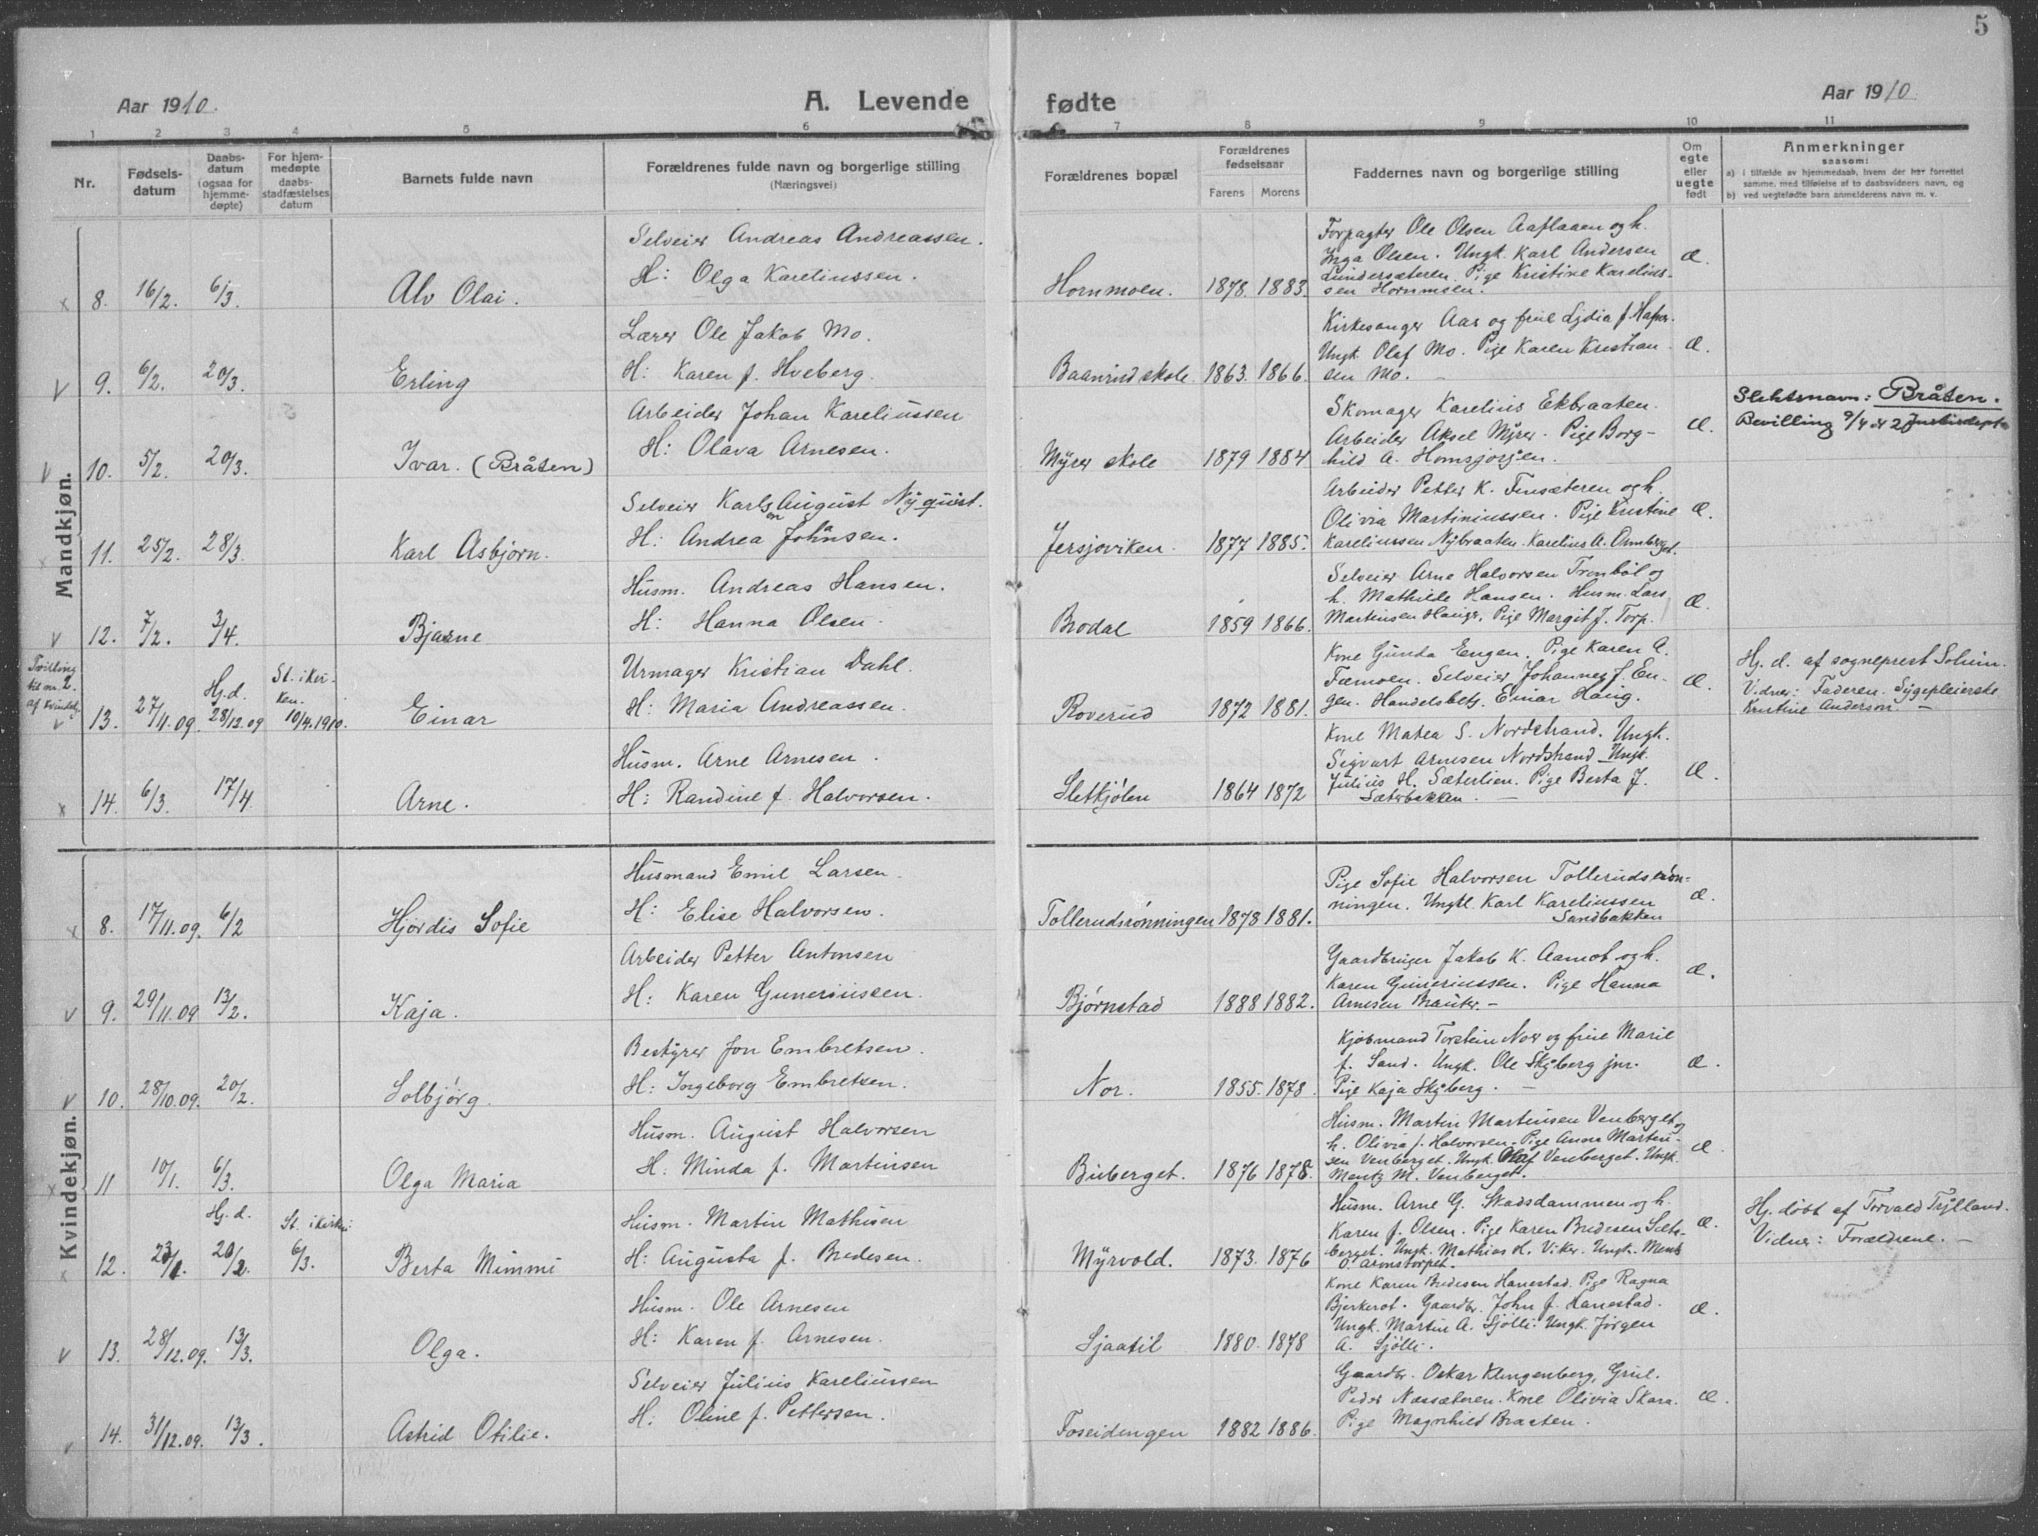 5
Aar 1910.
A. Levende
fødte
Aar 1910.
1 2 3 4 5 6 7 8 9 10 11
Nr.
Fødsels-
datum
Daabs-
datum
(ogsaa for
hjemme-
døpte)
For hjem-
medøpte
daabs-
stadfæstelses
datum
Barnets fulde navn
Forældrenes fulde navn og borgerlige stilling
(Næringsvei)
Forældrenes bopæl
Forældrenes
fødselsaar
Farens Morens
Faddernes navn og borgerlige stilling
Om
egte
eller
uegte
født
Anmerkninger
saasom:
a) i tilfælde av hjemmedaab, hvem der har forrettet
samme, med tilføielse af to daabsvidners navn, og
b) ved uegtefødte barn anmelderens navn m. v.
Mandkjøn.
Selveier Andreas Andreassen.
H: Olga Kareliussen.
x 8. 16/2. 6/3. Alv Olai. Hornmoen. 1878. 1883.
Forpagter Ole Olsen Aaflaaen og h.
Inga Olsen. Ungk. Karl Andersen
Lundersæteren. Pige Kristine Karelius-
sen Hornmoen.
Æ.
Lærer Ole Jakob Mo.
H: Karen f. Hveberg.
v 9. 6/2. 20/3. Erling Baanrud skole 1863. 1866.
Kirkesanger Aas og frue Lydia f. Hafner.
Ungk. Olaf Mo. Pige Karen Kristian-
sen Mo.
Æ.
Arbeider Johan Kareliussen
H: Olava Arnesen.
v 10. 5/2. 20/3. Ivar. (Bråten) Myrer skole 1879 1884
Skomager Karelius Ekbraaten.
Arbeider Aksel Myrer. Pige Borg-
hild A.
Æ.
Slektsnavn: Bråten.
Bevilling 9/4 Justisdept
Selveier Karl August Nyquist.
H: Andrea Johansen.
x 11. 25/2. 28/3. Karl Asbjørn. Jersjoviken. 1877 1885.
Arbeider Petter K. Finsæteren og h.
Olivia Martiniussen. Pige Kristine
Kareliussen Nybraaten. Karelius A.
Æ.
Husm. Andreas Hansen.
H: Hanna Olsen.
v 12. 7/2. 3/4. Bjarne Brodal 1859 1866.
Selveier Arne Halvorsen Trinbøl og
h. Mathilde Hansen. Husm. Lars
Martinsen Hauger. Pige Margit J. Torp.
Æ.
Tvilling
til nr. 2.
af kvindekj.
Urmager Kristian Dahl.
H: Maria Andreassen.
v 13. 27/11.09. Hj.d. 28/12.09 St. i kir-
ken. 10/4.1910. Einar Roverud 1872 1881.
Kone Gunda Engen. Pige Karen A.
Tæmoen. Selveier Johannes J. En-
gen. Handelsbetj. Einar Haug.
Æ.
Hj. d. af sogneprest Solum.
Vidner: Faderen. Sygepleierske
Kristine Anderson. –
Husm. Arne Arnesen.
H: Randine f. Halvorsen.
x 14. 6/3. 17/4 Arne. Sletkjølen 1864 1872
Kone Matea S. Nordstrand. Ungk.
Sigvart Arnesen Nordstrand Ungk.
Julius H. Sæterlien. Pige Berta J.
Sæterbakken. –
Æ.
Kvindekjøn.
Husmand Emil Larsen.
H: Elise Halvorsen.
x 8. 17/11.09. 6/2 Hjørdis Sofie Tollerudsrønningen 1878 1881.
Pige Sofie Halvorsen Tollerudsrøn-
ningen. Ungkl. Karl Kareliussen
Sandbakken
Æ.
Arbeider Petter Antonsen
H: Karen Guneriussen.
v 9. 29/11.09 13/2. Kaja. Bjørnstad 1888 1882.
Gaardbruger Jakob K. Aamot og h.
Karen Guneriussen. Pige Hanna
Arnesen –
Æ.
Bestyrer Jon Embretsen.
H: Ingeborg Embretsen.
v 10. 28/10.09. 20/2. Solbjørg. Nor. 1855. 1878.
Kjøbmand Torstein Nor og frue Marie
f. Sand. Ungk. Ole Skyberg jnr.
Pige Kaja Skyberg. –
Æ.
Husm. August Halvorsen
H: Minda f. Martinsen
x 11 10/1. 6/3. Olga Maria Buberget. 1876 1878.
Husm. Martin Martinsen Venberget og
h. Olivia f. Halvorsen. Pige Anna Martin-
sen Venberget. Ungk. Olaf Venberget. Ungk.
Mentz M. Venberget.
Æ.
Husm. Martin Mathisen
H: Augusta f. Bredesen.
x 12. 23/1. Hj.d. 20/2. St. i kirken 6/3. Berta Mimmi Myrvold. 1873. 1876
Husm. Arne G. Stadsdammen og h.
Karen f. Olsen. Pige Karen Bredesen Sæte-
berget. Ungk. Mathias H. Viker. Ungk. Mentz
O. Aronstorpet.
Æ.
Hj. døbt af Torvald Trylland.
Vidner: Forældrene. –
Husm. Ole Arnesen
H: Karen f. Arnesen.
v 13. 28/12.09. 13/3. Olga. Sjaatil 1880. 1878
Kone Karen Bredesen Hanestad. Pige Ragna
Bjerkerot. Gaardbr. John J. Hanestad.
Ungk. Martin A. Sjølli. Ungk. Jørgen
A. Sjølli.
Æ.
Selveier Julius Kareliussen
H: Oline f. Pettersen.
v 14. 31/12.09. 13/3. Astrid Otilie. Foseidengen 1882 1886.
Gaardbr. Oskar Klingenberg, Grul.
Peder Næssæteren. Kone Olivia Skara.
Pige Magnhild Braaten.
Æ.